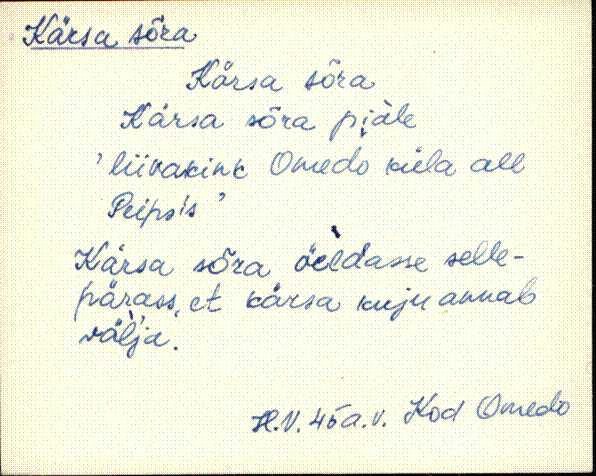 Kärsa sõra
Kärsa sõra
Kärsa sõra piäle
'liivakink Omedo küla all
Peipsis'
Kärsa sõra öeldasse selle-
pärass, et kärsa kuju annab
välja.
H.V. 45 a.v. Kod Omedo